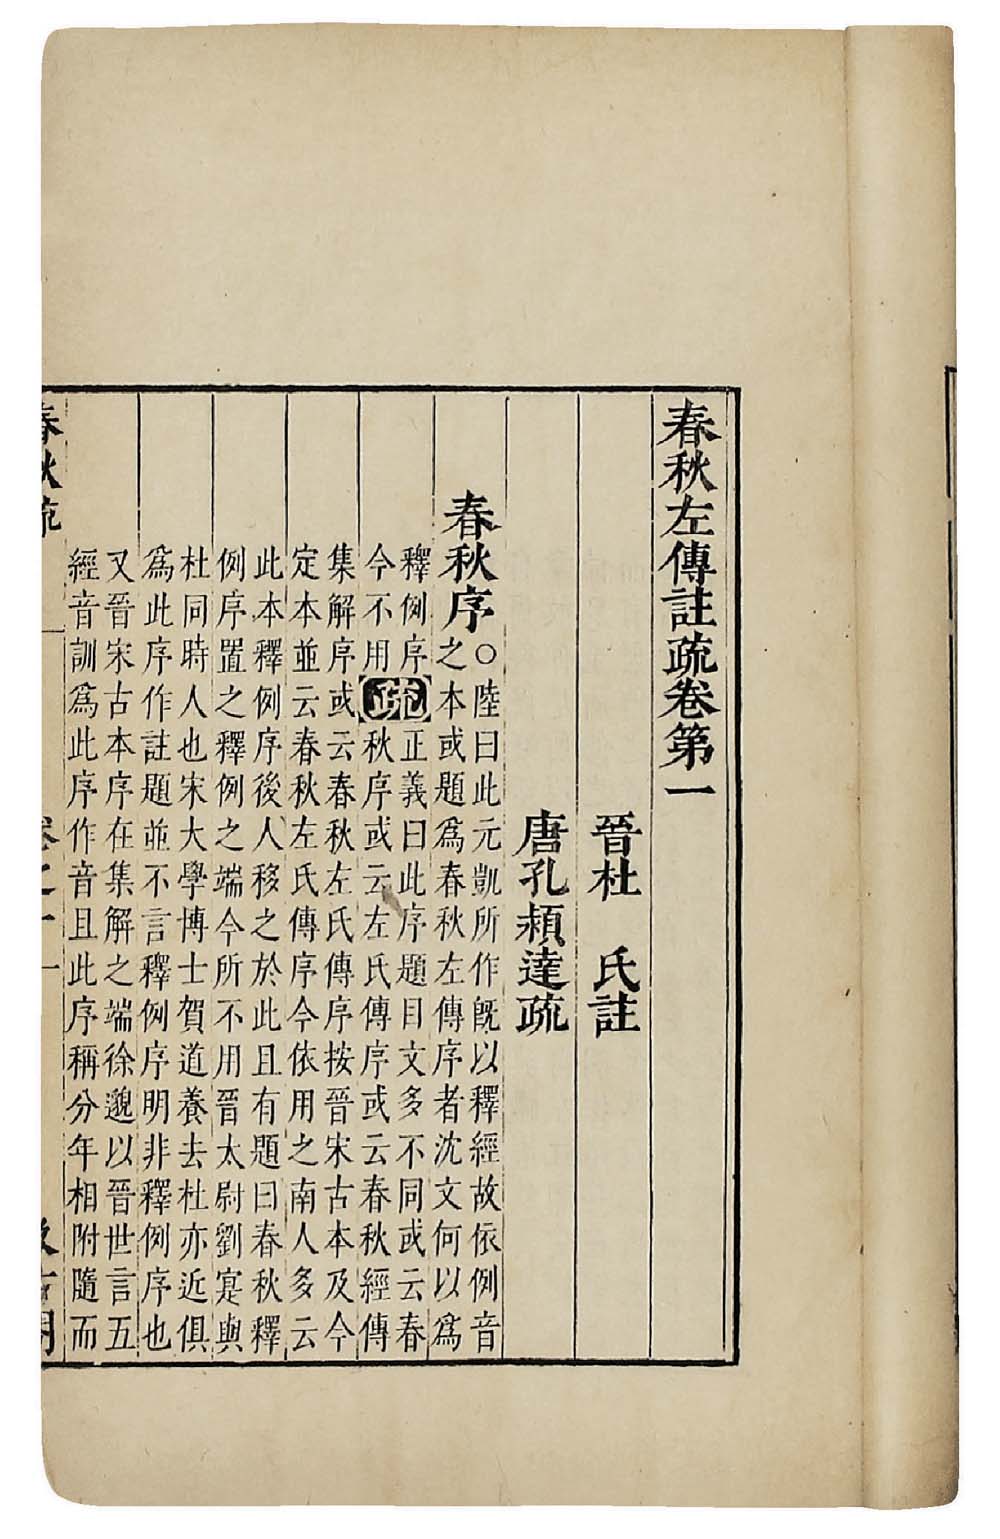 春秋左傳註疏卷第一
晉杜　氏註
唐孔頴達疏
春秋序
○陸曰此元凱所作旣以釋經故依例音
之本或題爲春秋左傳序者沈文何以爲
釋例序
今不用
疏
正義曰此序題目文多不同或云春
秋序或云左氏傳序或云春秋經傳
集解序或云春秋左氏傳序按晉宋古本及今
定本並云春秋左氏傳序今依用之南人多云
此本釋例序後人移之於此且有題曰春秋釋
例序置之釋例之端今所不用晉太尉劉寔與
杜同時人也宋大學博士賀道養去杜亦近俱
爲此序作註題並不言釋例序明非釋例序也
又晉宋古本序在集解之端徐邈以晉世言五
經音訓爲此序作音且此序稱分年相附隨而
春秋疏
卷之一
一